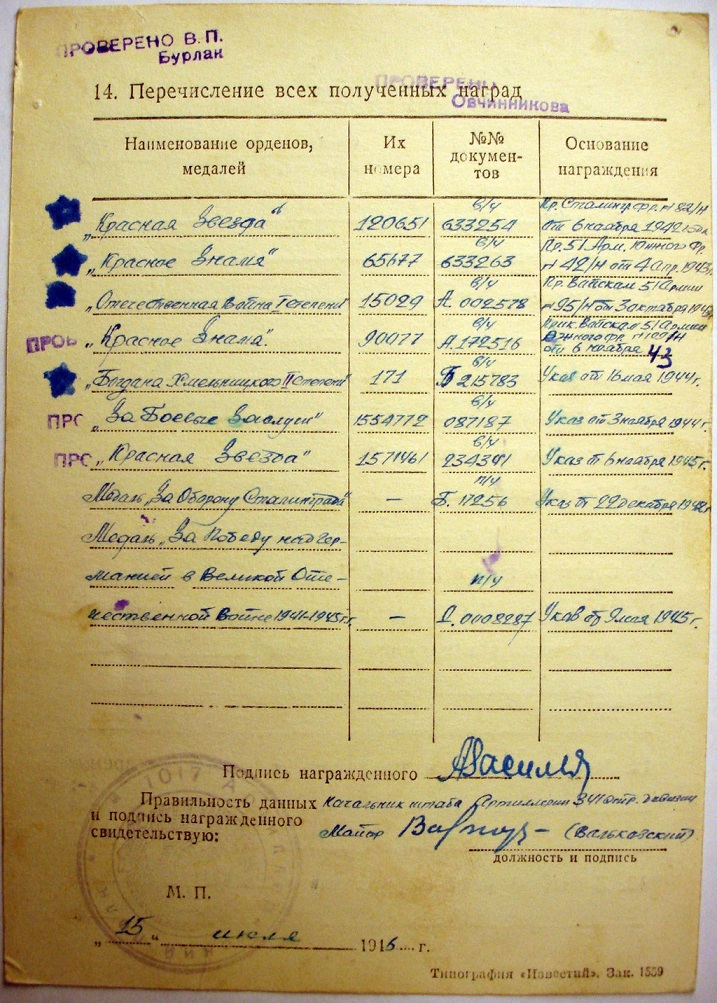 ПРОВЕРЕНО В. П.
Бурлак
ПРОВЕРЕНО
Овчинникова
14. Перечисление всех полученных наград
Наименование орденов, медалей
Их номера
№№ документов
Основание награждения
„Красная Звезда“ 120651 в/ч 633254 Пр. Сталингр. фр. № 82/н от 6 ноября 1942
„Красное Знамя“ 65677 в/ч 633263 Пр. 51 Арм. Южного Фр. № 42/н от 4 апр. 1943г.
„Отечественная Война I степени“ 15029 в/ч А 002578 Пр. Вайскам 51 Армии № 95/н от 3 октября 1943
ПРОВ „Красное Знамя“. 90077 в/ч А 172516 Прик. Вайскам 51 Армии Южного фр. от 6 ноября 43
„Богдана Хмельницкого II степени“ 171 в/ч Б 215783 Указ от 16 мая 1944г.
ПРО „За Боевые Заслуги“ 1554772 в/ч 087187 Указ от 3 ноября 1944г.
ПРО „Красная Звезда“ 1571461 в/ч 234391 Указ от 6 ноября 1945г.
Медаль „За Оборону Сталинграда“ – п/у Б. 17256 Указ от 22 декабря 1942г.
Медаль „За Победу над Гер-
манией в Великой Оте- п/у
чественной Войне 1941–1945г.г. – Д. 0008287 Указ от 9 мая 1945г.
Подпись награжденного
Правильность данных и подпись награжденного свидетельствую:
Начальник штаба Артиллерии
Майор (Вальковский)
должность и подпись
М. П.
„15“ июля 1946 г.
Типография «Известий». Зак. 1559